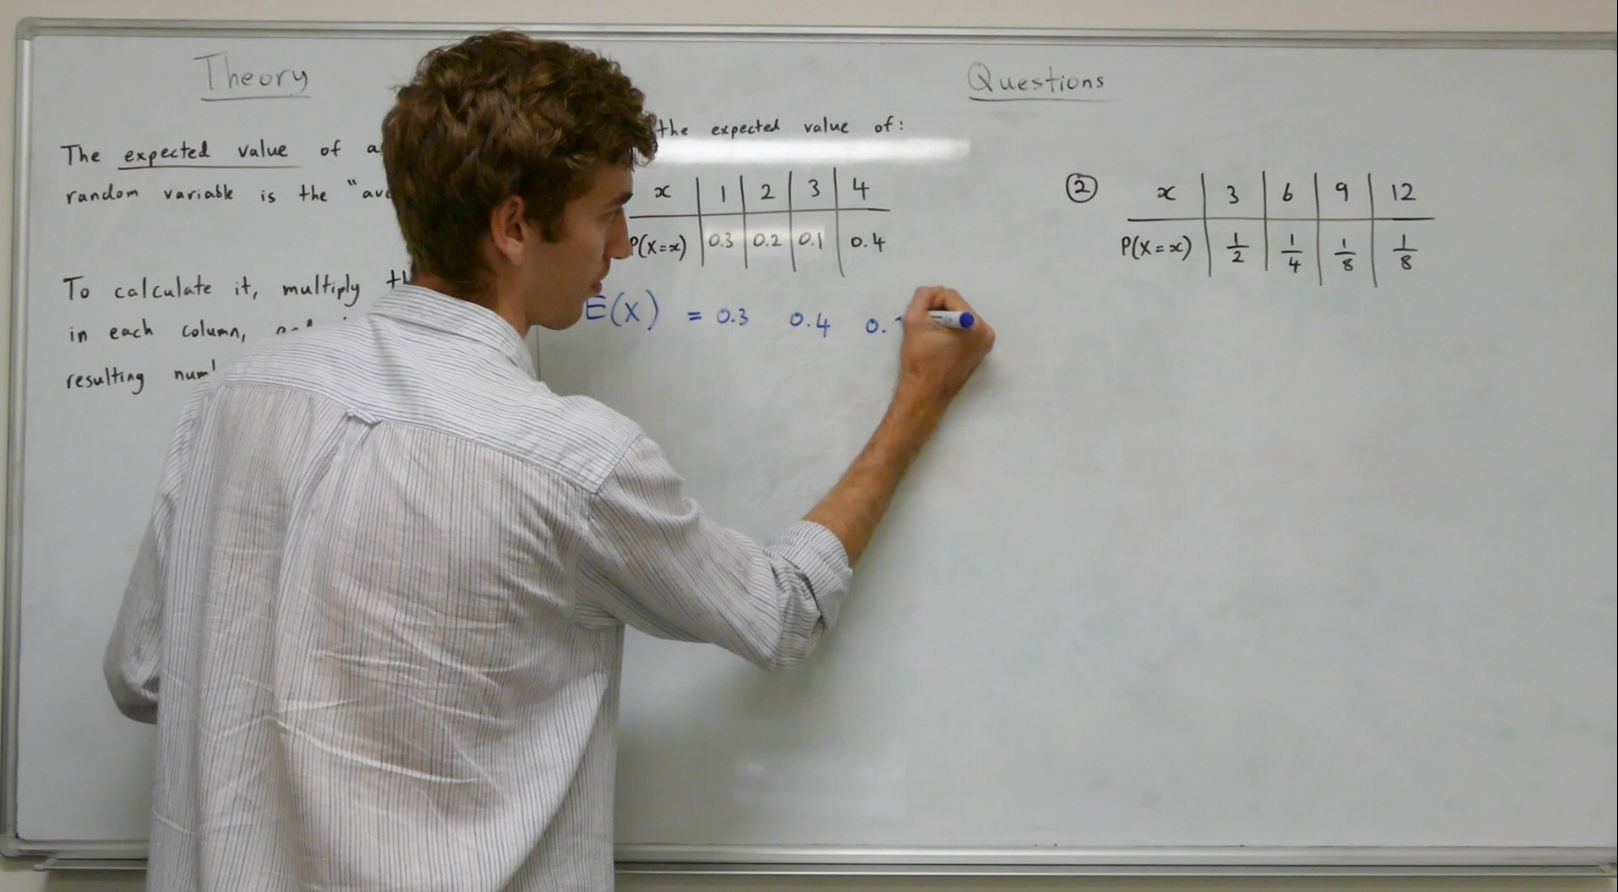 Theory
The expected value of a
random variable is the "ave
To calculate it, multiply th
in each column,
resulting num
Questions
the expected value of:
x 1 2 3 4
P(X=x) 0.3 0.2 0.1 0.4
E(X) = 0.3 0.4 0.
② x 3 6 9 12
P(X=x) 1/2 1/4 1/8 1/8